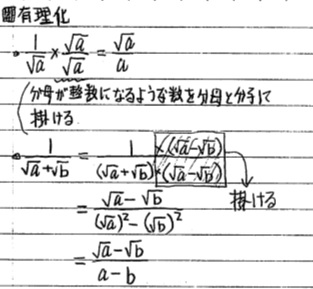 圏有理化
・1/√a × √a/√a = √a/a
(分母が整数になるような数を分母と分子に
掛ける
・1/(√a+√b) = 1×(√a-√b)/(√a+√b)×(√a-√b)
= (√a-√b)/((√a)²-(√b)²) 掛ける
= (√a-√b)/(a-b)